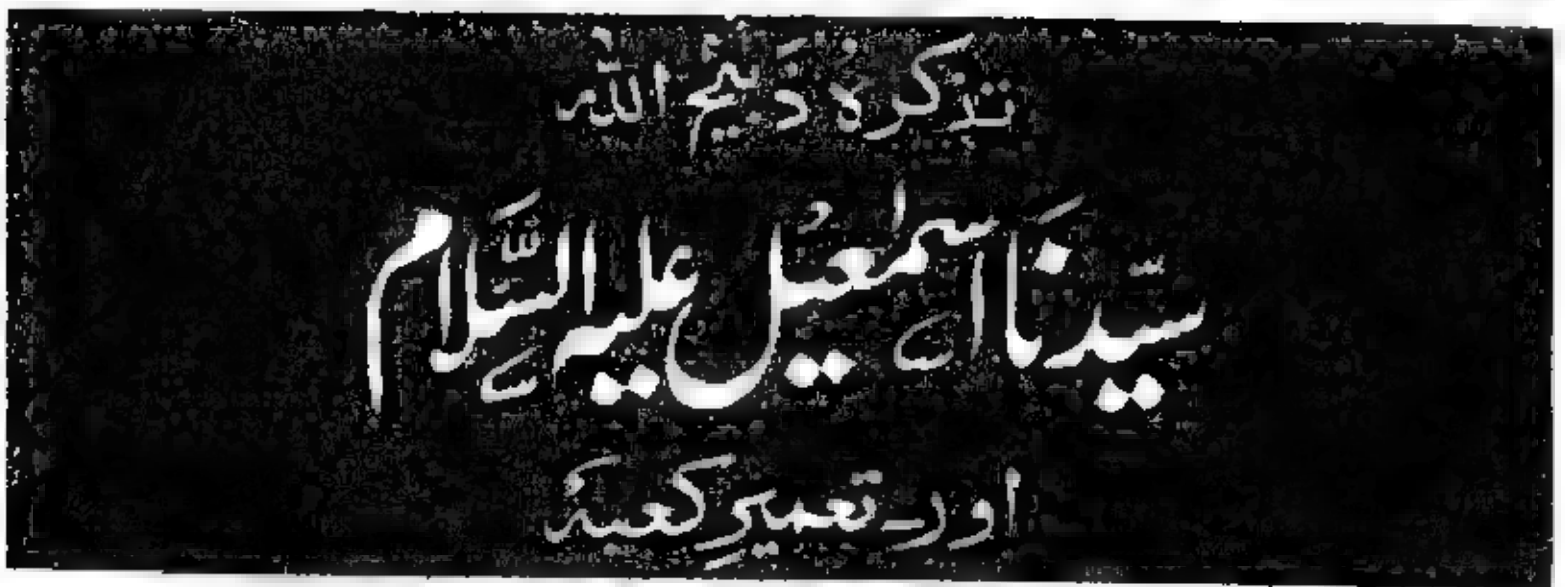 تذکرۂ ذبیح اللہ
سیّدنَا اسمٰعیل علیہ السَّلام
اور تعمیر کعبہ